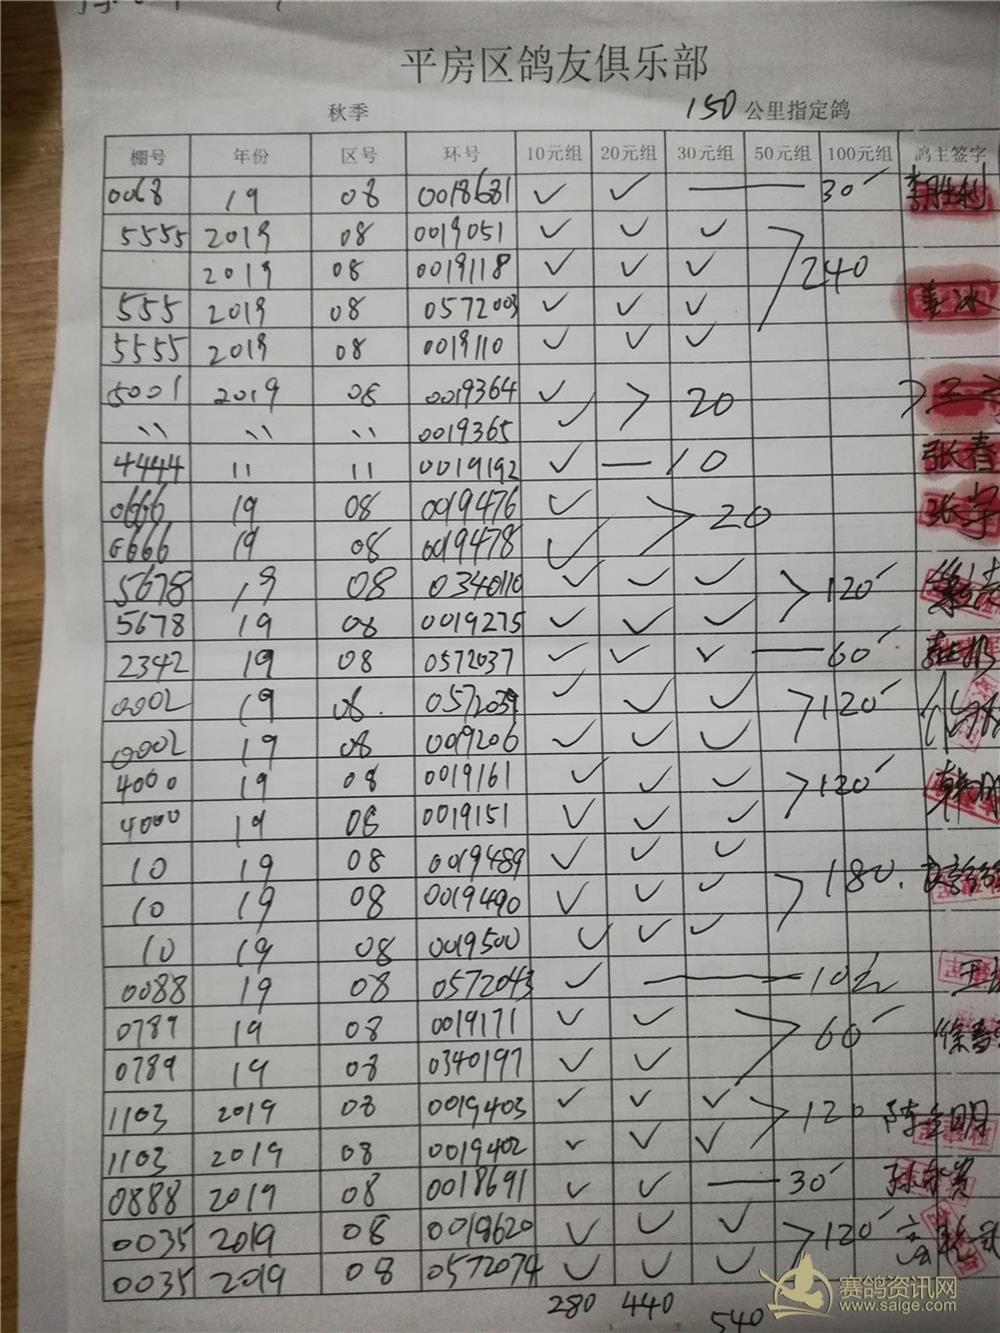 平房区鸽友俱乐部
秋季 150公里指定鸽
棚号 年份 区号 环号 10元组 20元组 30元组 50元组 100元组 鸽主签字
0068 19 08 0018681 ✓ ✓ — 30 李胜利
5555 2019 08 0019051 ✓ ✓ ✓
2019 08 0019118 ✓ ✓ ✓ 240
555 2019 08 0572003 ✓ ✓ ✓ 姜冰
5555 2019 08 0019110 ✓ ✓ ✓
5001 2019 08 0019364 ✓ 20
〃 〃 〃 0019365 ✓
4444 11 11 0019192 ✓ — 10 张春
0666 19 08 0019476 ✓ 20 张宇
6666 19 08 0019478 ✓
5678 19 08 0340110 ✓ ✓ ✓ 120
5678 19 08 0019275 ✓ ✓ ✓
2342 19 08 0572037 ✓ ✓ ✓ — 60
0002 19 08 0572039 ✓ ✓ ✓ 120
0002 19 08 0019206 ✓ ✓ ✓
4000 19 08 0019161 ✓ ✓ ✓ 120
4000 19 08 0019151 ✓ ✓ ✓
10 19 08 0019489 ✓ ✓ ✓
10 19 08 0019490 ✓ ✓ ✓ 180
10 19 08 0019500 ✓ ✓ ✓
0088 19 08 0572043 ✓ — 10元 王
0789 19 08 0019171 ✓ ✓ 60 徐
0789 19 08 0340197 ✓ ✓
1103 2019 08 0019403 ✓ ✓ ✓ 120 陈金明
1103 2019 08 0019402 ✓ ✓ ✓
0888 2019 08 0018691 ✓ ✓ — 30
0035 2019 08 0018620 ✓ ✓ ✓ 120
0035 2019 08 0572074 ✓ ✓ ✓
280 440 540
赛鸽资讯网
www.saige.com